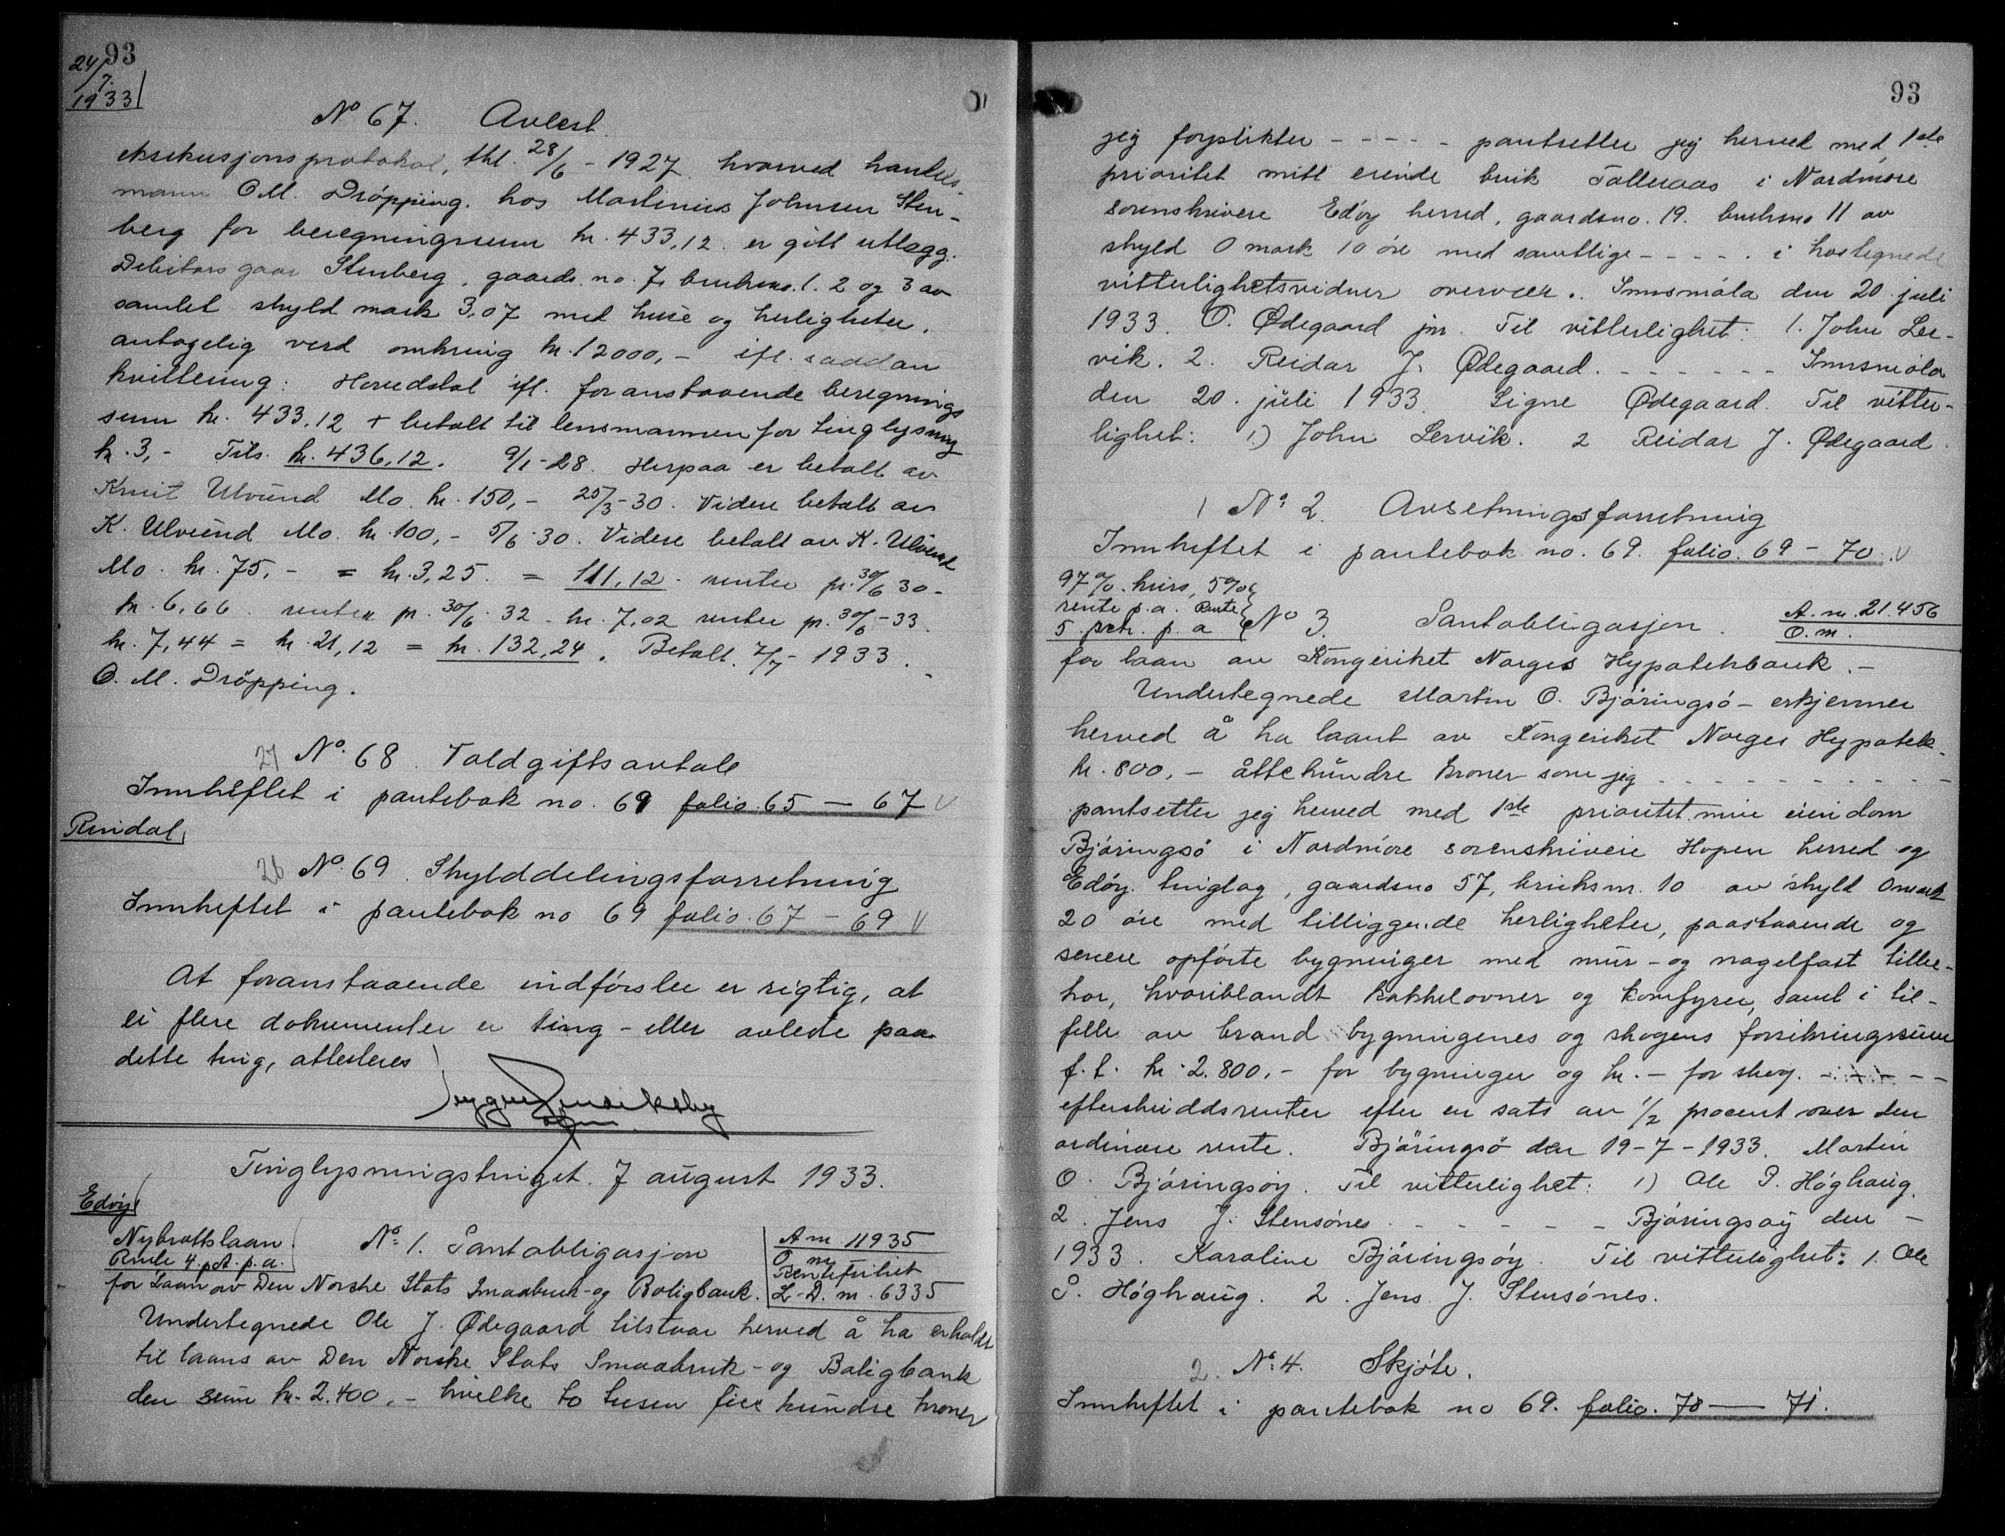 93
24/7.
1933
No 67. Avlest.
eksekusjonsprotokol, thl. 28/6 - 1927 hvorved handels-
mann O.M. Dröpping. hos Martinius Johnsen Sten-
berg for beregningssum kr. 433,12. er gitt utlegg.
Debitors gaar Stenberg, gaards. no. 7, bruksno. 1. 2 og 3 av
samlet skyld mark 3,07 med huse og herligheter.
antagelig verd omkring kr. 12000,- ifl. saadan
kvittering: Hovedstol ifl. foranstaaende beregnings
sum kr. 433,12 + betalt til lensmannen for tinglysning
kr. 3,- Tils. kr. 436,12. 9/1-28. Herpaa er betalt av
Knut Ulvund Mo. kr. 150,- 25/3-30. Videre betalt av
K. Ulvund Mo. kr. 100,- 5/6-30. Videre betalt av K. Ulvund
Mo. kr. 75,- = kr. 3,25. = 111,12. renter pr. 30/6 30-
kr. 6,66. renter pr. 30/6. 32. kr. 7,02 renter pr. 30/6-33.
kr. 7,44 = kr. 21,12 = kr. 132,24. Betalt. 7/7-1933.
O. M. Dröpping.
27 No. 68. Toldgiftsavtale
Innheftet i pantebok no. 69 folio. 65 — 67 V
Rindal
26 No. 69. Skylddelingsforretning
Innheftet i pantebok no 69 folio. 67 - 69 V
At foranstaaende indförsler er rigtig, at
ei flere dokumenter er ting- eller avleste paa
dette ting, attesteres
Tinglysningstinget. 7 august 1933.
Edöy
Nybrottslaan.
Rente 4. pct. p.a.
No. 1. Pantobligasjon
A m. 11935
O. m
Rentefrihet
L. D. m. 6335
for Laan av Den Norske Stats Smaabruk- og Boligbank.
Undertegnede Ole J. Ødegaard tilstaar herved å ha erholdt
til laans av Den Norske Stats Smaabruk- og Boligbank
den sum kr. 2.400,- hvilke to tusen fire hundre kroner
93
jeg forplikter - - - - - pantsetter jeg herved med 1ste
prioritet mitt eiende bruk Tolleraas i Nordmøre
sorenskriveri Edöy herred, gaardsno. 19. bruksno 11 av
skyld 0 mark 10 öre med samtlige - - - - - i hostegnede
vitterlighetsvidner overvær.. Innsmöla den 20. juli
1933. O. Ødegaard jnr. Til vitterlighet: 1. John Ler-
vik. 2. Reidar J. Ødegaard. - - - - - - Innsmöla
den 20. juli 1933. Signe Ødegaard. Til vitter-
lighet: 1) John Lervik. 2 Reidar J. Ødegaard.
1 No 2. Avsetningsforretning
Innheftet i pantebok no. 69. folio. 69 - 70. V
97 % kurs, 5%
rente p.a. Rente
5. pct. p. a
No 3. Pantobligasjon.
A. m. 21.456
O. m.
for laan av Kongeriket Norges Hypotekbank.-
Undertegnede Martin O. Björingsö- erkjenner
herved å ha laant av Kongeriket Norges Hypotek-
kr. 800,- åttehundre kroner som jeg - - - - - - - - -
pantsetter jeg herved med 1ste prioritet min eiendom
Björingsö i Nordmöre sorenskriveri Hopen herred og
Edöy tinglag, gaardsno 57, bruksnr. 10 av skyld 0 mark
20 öre med tilliggende herligheter, paastaaende og
senere opförte bygninger med mur- og nagelfast tilbe-
hör, hvoriblandt kakkelovner og komfyrer, samt i til-
felle av brand bygningenes og skogens forsikringssum
f. t. kr. 2.800,- for bygninger og kr. - for skog. - - - - -
efterskuddsrenter efter en sats av 1/2 procent over den
ordinære rente. Björingsö den 19-7-1933. Martin
O. Björingsöy. Til vitterlighet: 1) Ole P. Höghaug.
2. Jens J. Stensönes. - - - - - - Björingsöy den -
1933. Karoline Björingsöy. Til vitterlighet: 1. Ole
P. Höghaug. 2. Jens J. Stensönes.
2. No. 4. Skjöte.
Innheftet i pantebok no 69. folio. 70 — 71.